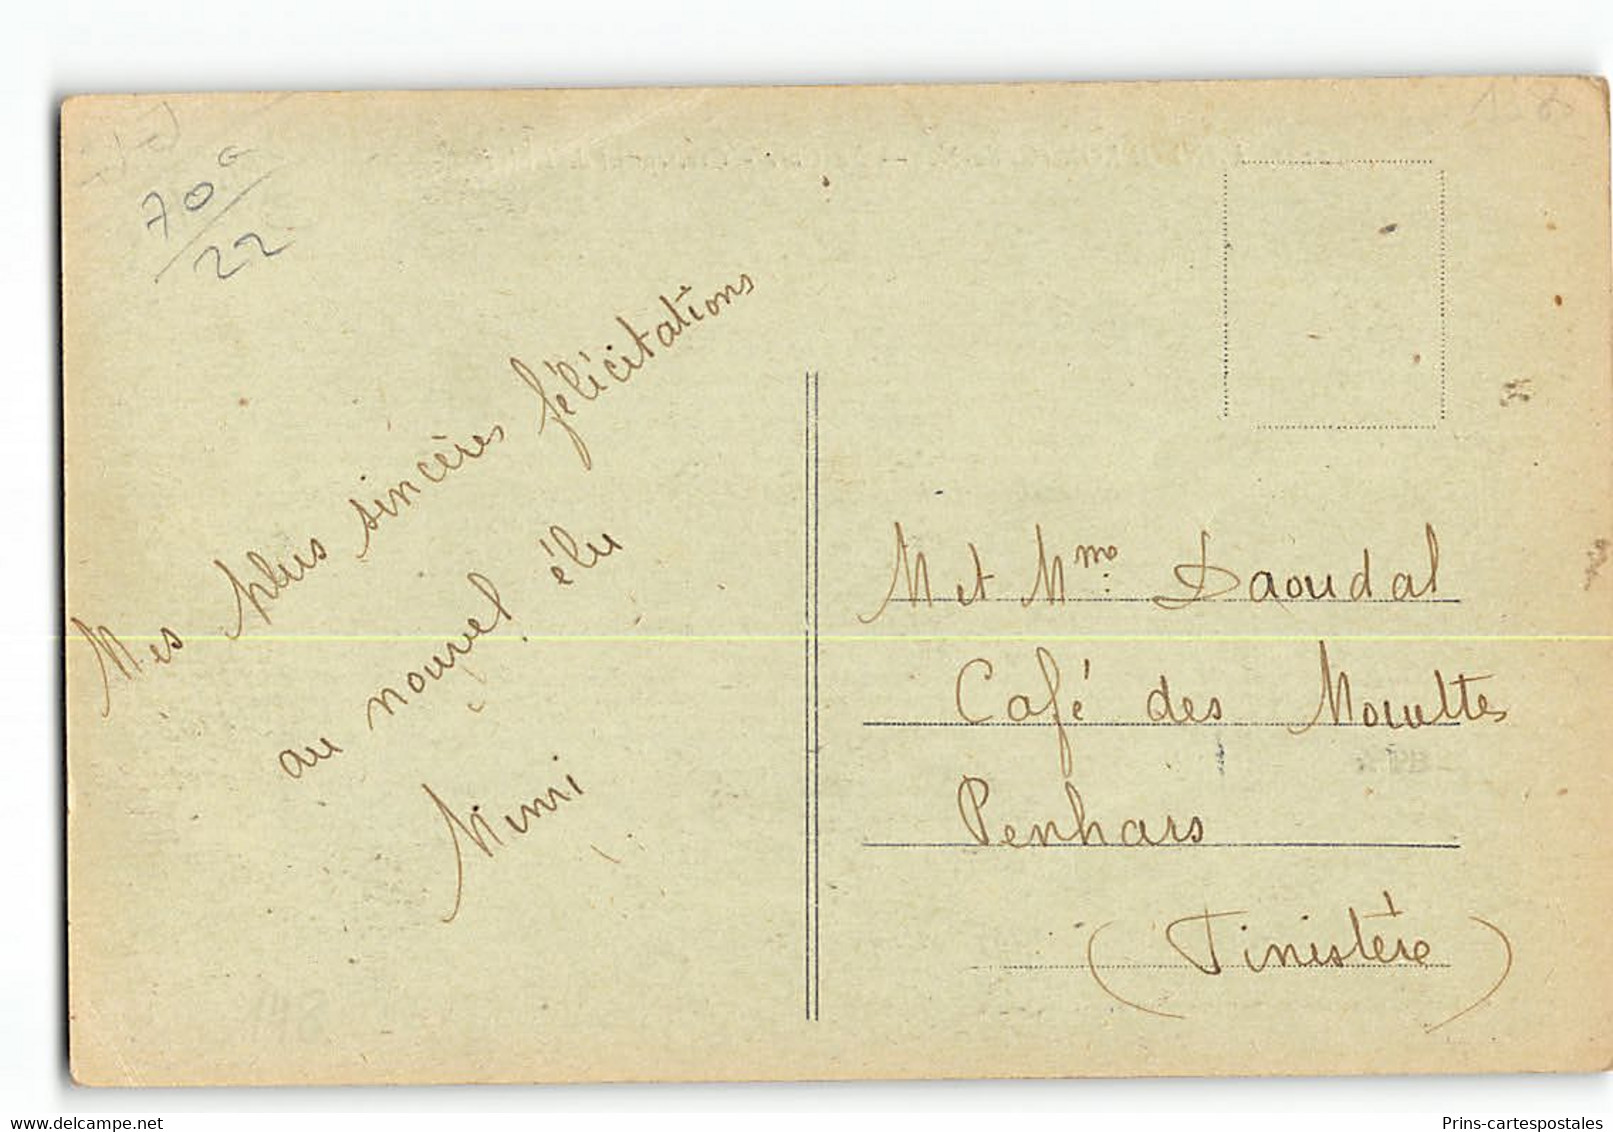 70
22
Mes plus sincères félicitations
au nouvel élu
Mimi
M et Mme. Daoudal
Café des Mouettes
Penhars
(Finistère)
148
Prins-cartespostales
delcampe.net